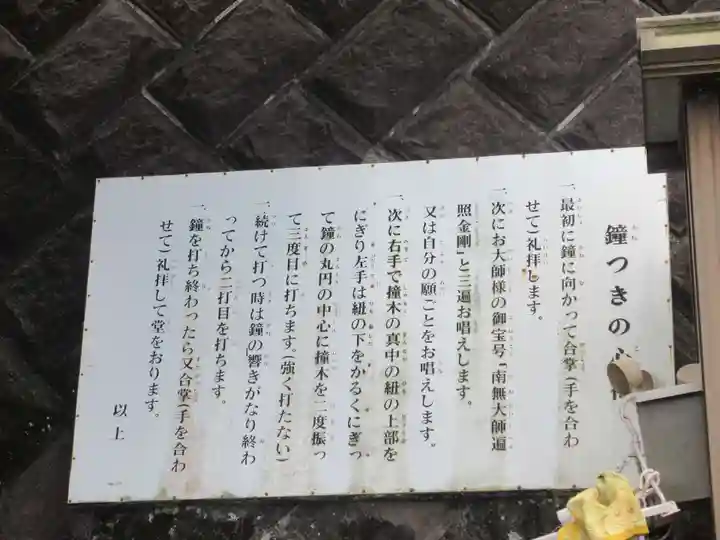 鐘つきの心
一、最初に鐘に向かって合掌(手を合わ
せて)礼拝します。
一、次にお大師様の御宝号「南無大師遍
照金剛」と三遍お唱えします。
又は自分の願ごとをお唱えします。
一、次に右手で撞木の真中の紐の上部を
にぎり左手は紐の下をかるくにぎっ
て鐘の丸円の中心に撞木を二度振っ
て三度目に打ちます。(強く打たない)
一、続けて打つ時は鐘の響きがなり終わ
ってから二打目を打ちます。
一、鐘を打ち終わったら又合掌(手を合わ
せて)礼拝して堂をおります。
以上